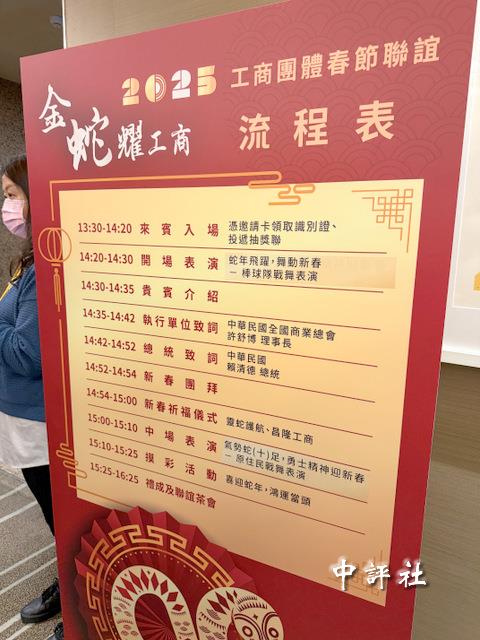 2025 工商團體春節聯誼
金蛇耀工商
流程表
13:30-14:20 來賓入場 憑邀請卡領取識別證、
投遞抽獎聯
14:20-14:30 開場表演 蛇年飛躍,舞動新春
– 棒球隊戰舞表演
14:30-14:35 貴賓介紹
14:35-14:42 執行單位致詞 中華民國全國商業總會
許舒博 理事長
14:42-14:52 總統致詞 中華民國
賴清德 總統
14:52-14:54 新春團拜
14:54-15:00 新春祈福儀式 靈蛇護航、昌隆工商
15:00-15:10 中場表演 氣勢蛇(十)足,勇士精神迎新春
– 原住民戰舞表演
15:10-15:25 摸彩活動 喜迎蛇年,鴻運當頭
15:25-16:25 禮成及聯誼茶會
中評社